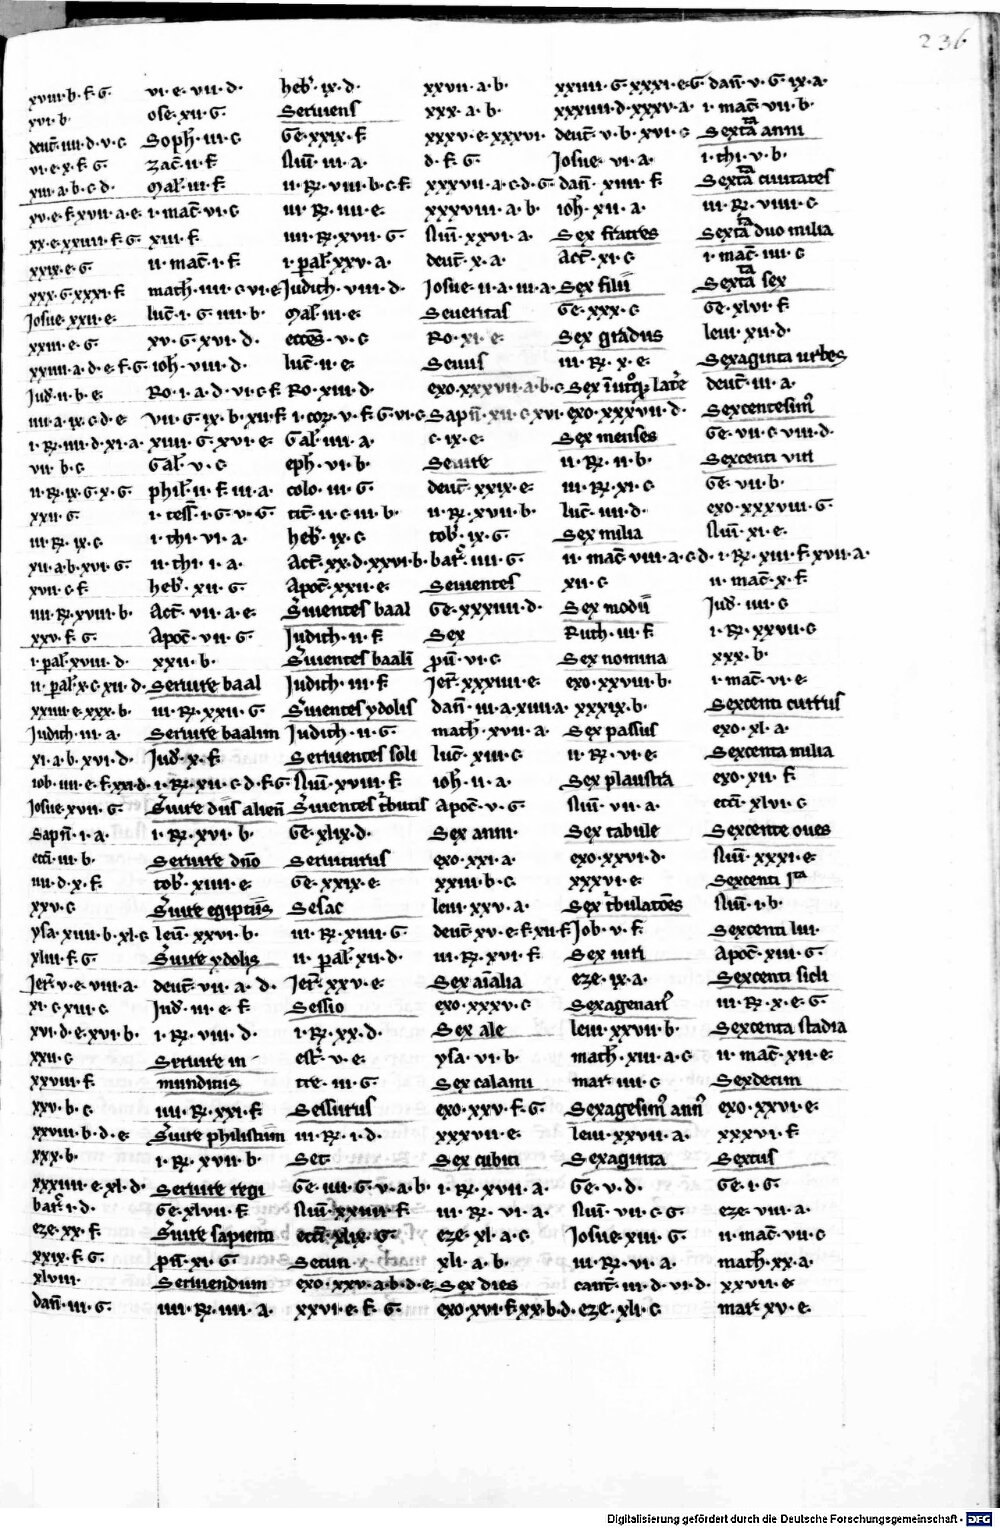 236
xviii·b·f·G
xvi·b·
deut̄·iiii·d·v·c
vi·e·x·f·G
xiii·a·b·c·d·
xv·e·f·xvii·a·e·
xx·e·xxiiii·f·G
xxix·e·G
xxx·G·xxxi·f
Josue·xxii·e·
xxiii·e·G
xxiiii·a·d·e·f·G
Jud̄·ii·b·e·
iiii·a·ix·c·d·e
i·R·iiii·d·xi·a·
vii·b·c
ii·R·ix·G·x·G
xxii·G
iii·R·ix·c
xii·a·b·xvi·G
xvii·c·f
iiii·R·xviii·b·
xxv·f·G·
i·pal̄·xviii·d·
ii·pal̄·x·c·xii·d·
xxiiii·e·xxx·b·
Judith·iii·a·
xi·a·b·xvi·d·
iob·iiii·e·f·xxi·d·
Josue·xvii·G·
Sapn̄·i·a·
ecci·iii·b·
iiii·d·x·f·
xxv·c
ysa·xiiii·b·xl·c
xliii·f·G
Jer̄·v·e·viii·a·
xi·c·xiii·c
xvi·d·e·xvi·b·
xxii·c
xxviii·f·
xxv·b·c
xxviii·b·d·e
xxx·b·
xxxiiii·e·xl·d·
bar̄·i·d·
eze·xx·f·
xxix·f·G·
xlviii·
dan̄·iii·G·
vi·e·vii·d·
ose·xii·G·
Soph̄·iii·c
zac̄·ii·f
Mal̄·iii·f·
i·mac̄·vi·c
xiii·f
ii·mac̄·i·f·
math̄·iiii·c·vi·e
luc̄·i·G·iiii·b·
xv·G·xvi·d·
ioh̄·viii·d·
Ro·i·a·d·vi·c·f
vii·G·ix·b·xii·f
xiiii·G·xvi·e·
Gal̄·v·c
phil̄·ii·f·iii·a·
i·tess̄·i·G·v·G
i·thi·vi·a·
ii·thi·i·a·
heb̄·xii·G·
Act̄·vii·a·e·
Apoc̄·vii·G·
xxii·b·
Seruire baal
iii·R·xxii·G
Seruire baalim
Jud̄·x·f·
i·R·xii·c·d·f·G
S̄uire diis alien̄
i·R·xvi·b·
Seruire dn̄o
tob̄·xiiii·e·
S̄uire egiptiis
leui·xxvi·b·
S̄uire ydolis
deut̄·vii·a·d·
Jud̄·iii·e·f·
i·R·viii·d·
Seruire in
munditiis
iiii·R·xxi·f·
S̄uire philistiim
i·R·xvii·b·
Seruire regi
Ge·xlvii·f·
S̄uire sapienti
pn̄·xi·G·
Seruiendum
iiii·R·iiii·a·
heb̄·ix·d·
Seruiens
Ge·xxix·f
Nūi·iii·a·
ii·R·viii·b·c·f
iii·R·iiii·e·
iiii·R·xvii·G
i·pal̄·xxv·a·
Judith·viii·d·
Mal̄·iii·e·
eccēs·v·c
luc̄·ii·e·
Ro·xiii·d·
i·cor̄·v·f·G·vi·c
Gal̄·iiii·a·
eph̄·vi·b·
colo·iii·G·
tit̄·ii·c·iii·b·
heb̄·ix·c
Act̄·xx·d·xxvi·b·
Apoc̄·xxii·e·
S̄uientes baal
Judith·ii·f·
S̄uientes baali
Judith·iii·f·
S̄uientes ydolis
Judith·ii·G·
Seruientes soli
Nūi·xviii·f·
S̄uientes t̄butis
Ge·xlix·d·
Seruiturus
Ge·xxix·e·
Sesac
iii·R·xiiii·G
ii·pal̄·xii·d·
Jer̄·xxv·e·
Sessio
i·R·xx·d·
est̄·v·e·
tre·iii·G·
Sessurus
iii·R·i·d·
Set
Ge·iiii·G·v·a·b·
Nūi·xxiiii·f
ecci·xlix·G·
Setim
exo·xxv·a·b·d·e·
xxvi·e·f·G·
xxvii·a·b·
xxx·a·b·
xxxv·e·xxxvi·
d·f·G
xxxvii·a·c·d·G·
xxxviii·a·b·
Nūi·xxvi·a·
deut̄·x·a·
Josue·ii·a·iii·a·
Seueritas
Ro·xi·e·
Seuus
exo·xxxvii·a·b·c
Sapn̄·xii·c·xvi
c·ix·e·
Seuire
deut̄·xxix·e·
ii·R·xvii·b·
tob̄·ix·G·
bar̄·iiii·G·
Seuientes
Ge·xxxiiii·d·
Sex
pu̅·vi·c
Jer̄·xxxviii·e·
dan̄·iii·a·xiiii·a·
math̄·xvii·a·
luc̄·xiii·c
ioh·ii·a·
Apoc̄·v·G·
Sex anni·
exo·xxi·a·
xxiii·b·c
leui·xxv·a·
deut̄·xv·e·f·xii·f
iii·R·xvi·f·
Sex aīalia
exo·xxxv·c
Sex ale
ysa·vi·b·
Sex calami
exo·xxv·f·G·
xxxvii·e·
Sex cubiti
i·R·xvii·a·
iii·R·vi·a·
eze·xl·a·c
xli·a·b·
Sex dies
exo·xvi·f·xx·b·d·
xxxiiii·G·xxxi·e·G
xxxiiii·d·xxxv·a·
deut̄·v·b·xvi·c
Josue·vi·a·
dan̄·xiiii·f·
ioh̄·xii·a·
Sex fratres
Act̄·xi·c
Sex filii
Ge·xxx·c
Sex gradus
iii·R·x·e·
Sex īutroq; late
exo·xxxvii·d·
Sex menses
ii·R·ii·b·
iii·R·xi·c
luc̄·iiii·d·
Sex milia
ii·mac̄·viii·a·c·d·
xii·c
Sex modii
Ruth·iii·f·
Sex nomina
exo·xxviii·b·
xxxix·b·
Sex passus
ii·R·vi·e·
Sex plaustra
Nūi·vii·a·
Sex tabule
exo·xxvi·d·
xxxvi·e·
Sex t̄bulatōes
Job·v·f·
Sex uiri
eze·ix·a·
Sexagenari⁹
leui·xxvii·b·
math̄·xiii·a·c
mar̄·iiii·c
Sexagesim⁹ ann⁹
leui·xxvii·a·
Sexaginta
Ge·v·d·
Nūi·vii·c·G
Josue·xiii·G·
iii·R·vi·a·
cant̄·iii·d·vi·d·
eze·xli·c
dan̄·v·G·ix·a·
i·mac̄·vii·b·
Sexta anni
i·thi·v·b·
Sexta ciuitates
iii·R·viiii·c
Sexta duo milia
i·mac̄·iiii·c
Sexta sex
Ge·xlvi·f
leui·xii·d·
Sexaginta urbes
deut̄·iii·a·
Sexcentesim⁹
Ge·vii·c·viii·d·
Sexcenti viri
Ge·vii·b·
exo·xxxviii·G·
Nūi·xi·e·
i·R·xiii·f·xvii·a·
ii·mac̄·x·f·
Jud̄·iii·c
i·R·xxvii·c
xxx·b·
i·mac̄·vi·e·
Sexcenti currus
exo·xl·a·
Sexcenta milia
exo·xii·f
ecci·xlvi·c
Sexcente oues
Nūi·xxxi·e·
Sexcenti
Nūi·i·b·
Sexcenti lxvi·
Apoc̄·xiii·G·
Sexcenti sicli
iii·R·x·e·G·
Sexcenta stadia
ii·mac̄·xii·e·
Sexdecim
exo·xxvi·e·
xxxvi·f
Sextus
Ge·i·G
eze·viii·a·
ii·mac̄·vii·c
math̄·xx·a·
xxvii·e
mar̄·xv·e·
Digitalisierung gefördert durch die Deutsche Forschungsgemeinschaft - DFG